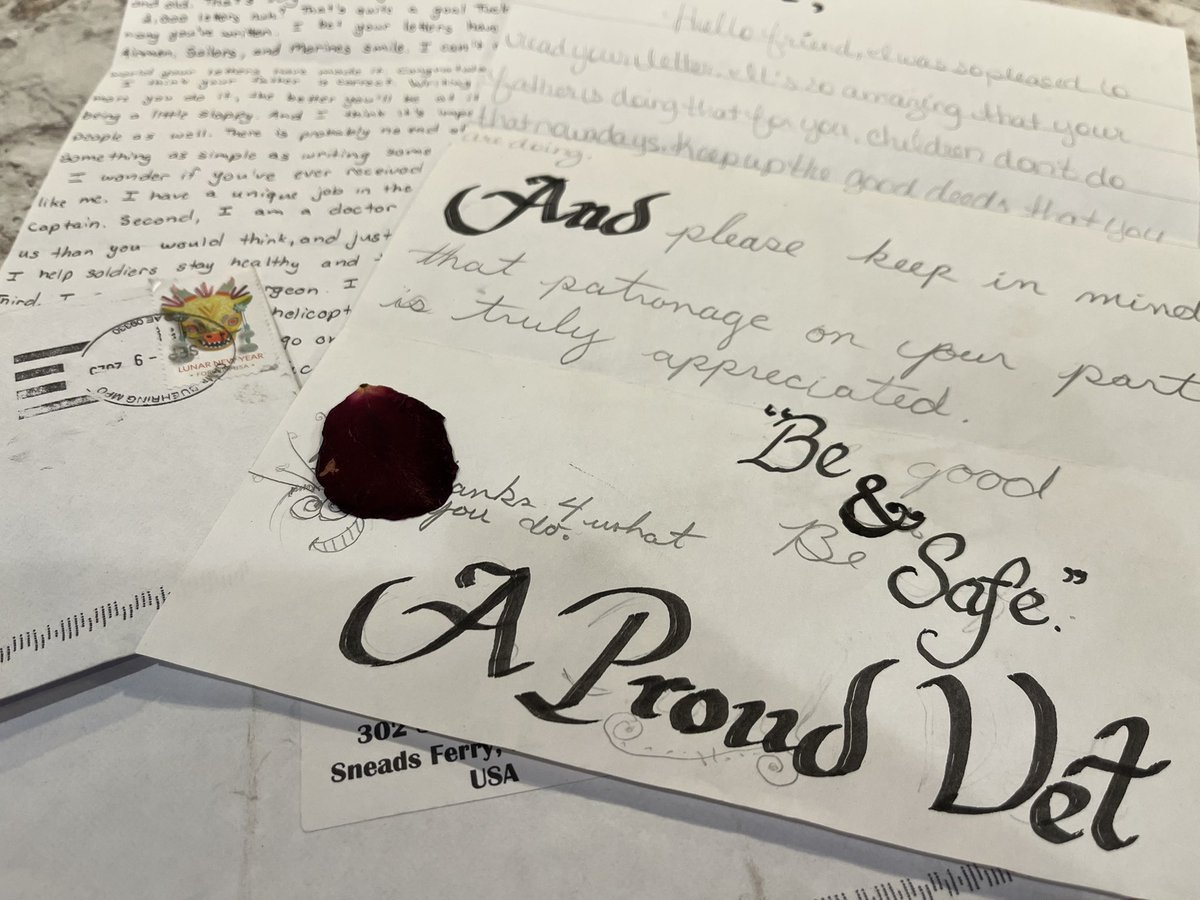 and old. That's
2,000 letters huh? That's quite a goal
many you've written. I bet your letters have
Airmen, Sailors, and Marines smile. I can't
world your letters have made it.
I think your father is correct. Writing
more you do it, the better you'll be at it
being a little sloppy. And I think it's
people as well. There is probably no end of
Something as simple as writing some
I wonder if you've ever received
like me. I have a unique job in the
captain. Second, I am a doctor
us than you would think, and just
I help soldiers stay healthy and
Third, I
geon. I
helicopt
go or
LUNAR NEW YEAR
FOREVER USA
AE 09330
BUEHRING MPO
Hello friend, I was so pleased to
read your letter. It's so amazing that your
father is doing that for you, children don't do
that nowdays. Keep up the good deeds that you
are doing.
And please keep in mind
that patronage on your part
is truly appreciated.
"Be good
& Be Safe."
anks 4 what
you do.
A Proud Vet
302
Sneads Ferry,
USA